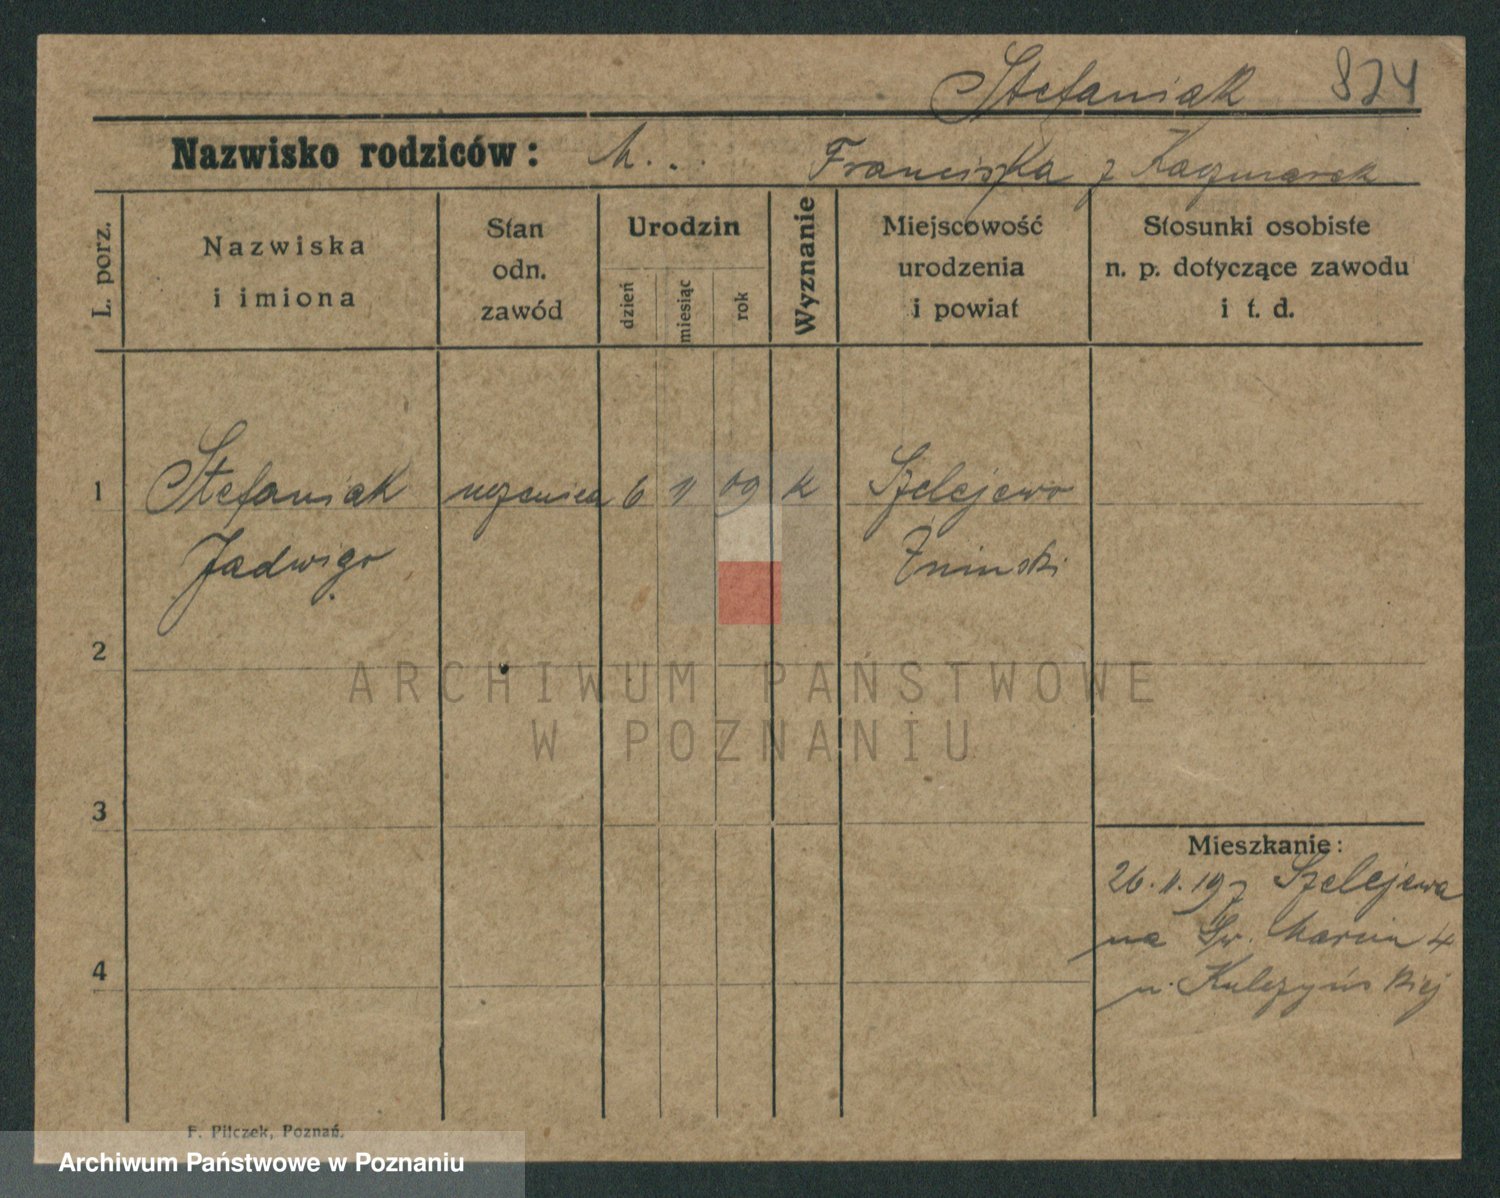 Stefaniak 824
Nazwisko rodziców: M... Franciszka z Kaczmarek
L. porz.
Nazwiska
i imiona
Stan
odn.
zawód
Urodzin
dzień
miesiąc
rok
Wyznanie
Miejscowość
urodzenia
i powiat
Stosunki osobiste
n. p. dotyczące zawodu
i t. d.
1 Stefaniak uczenica 6 11 09 k Szelejewo
Jadwiga Żninski
2
ARCHIWUM PAŃSTWOWE
W POZNANIU
3
Mieszkanie:
26.11.19 z Szelejewa
na Św. Marcin 4
4
u Kulczyńskiej
F. Pilczek, Poznań.
Archiwum Państwowe w Poznaniu